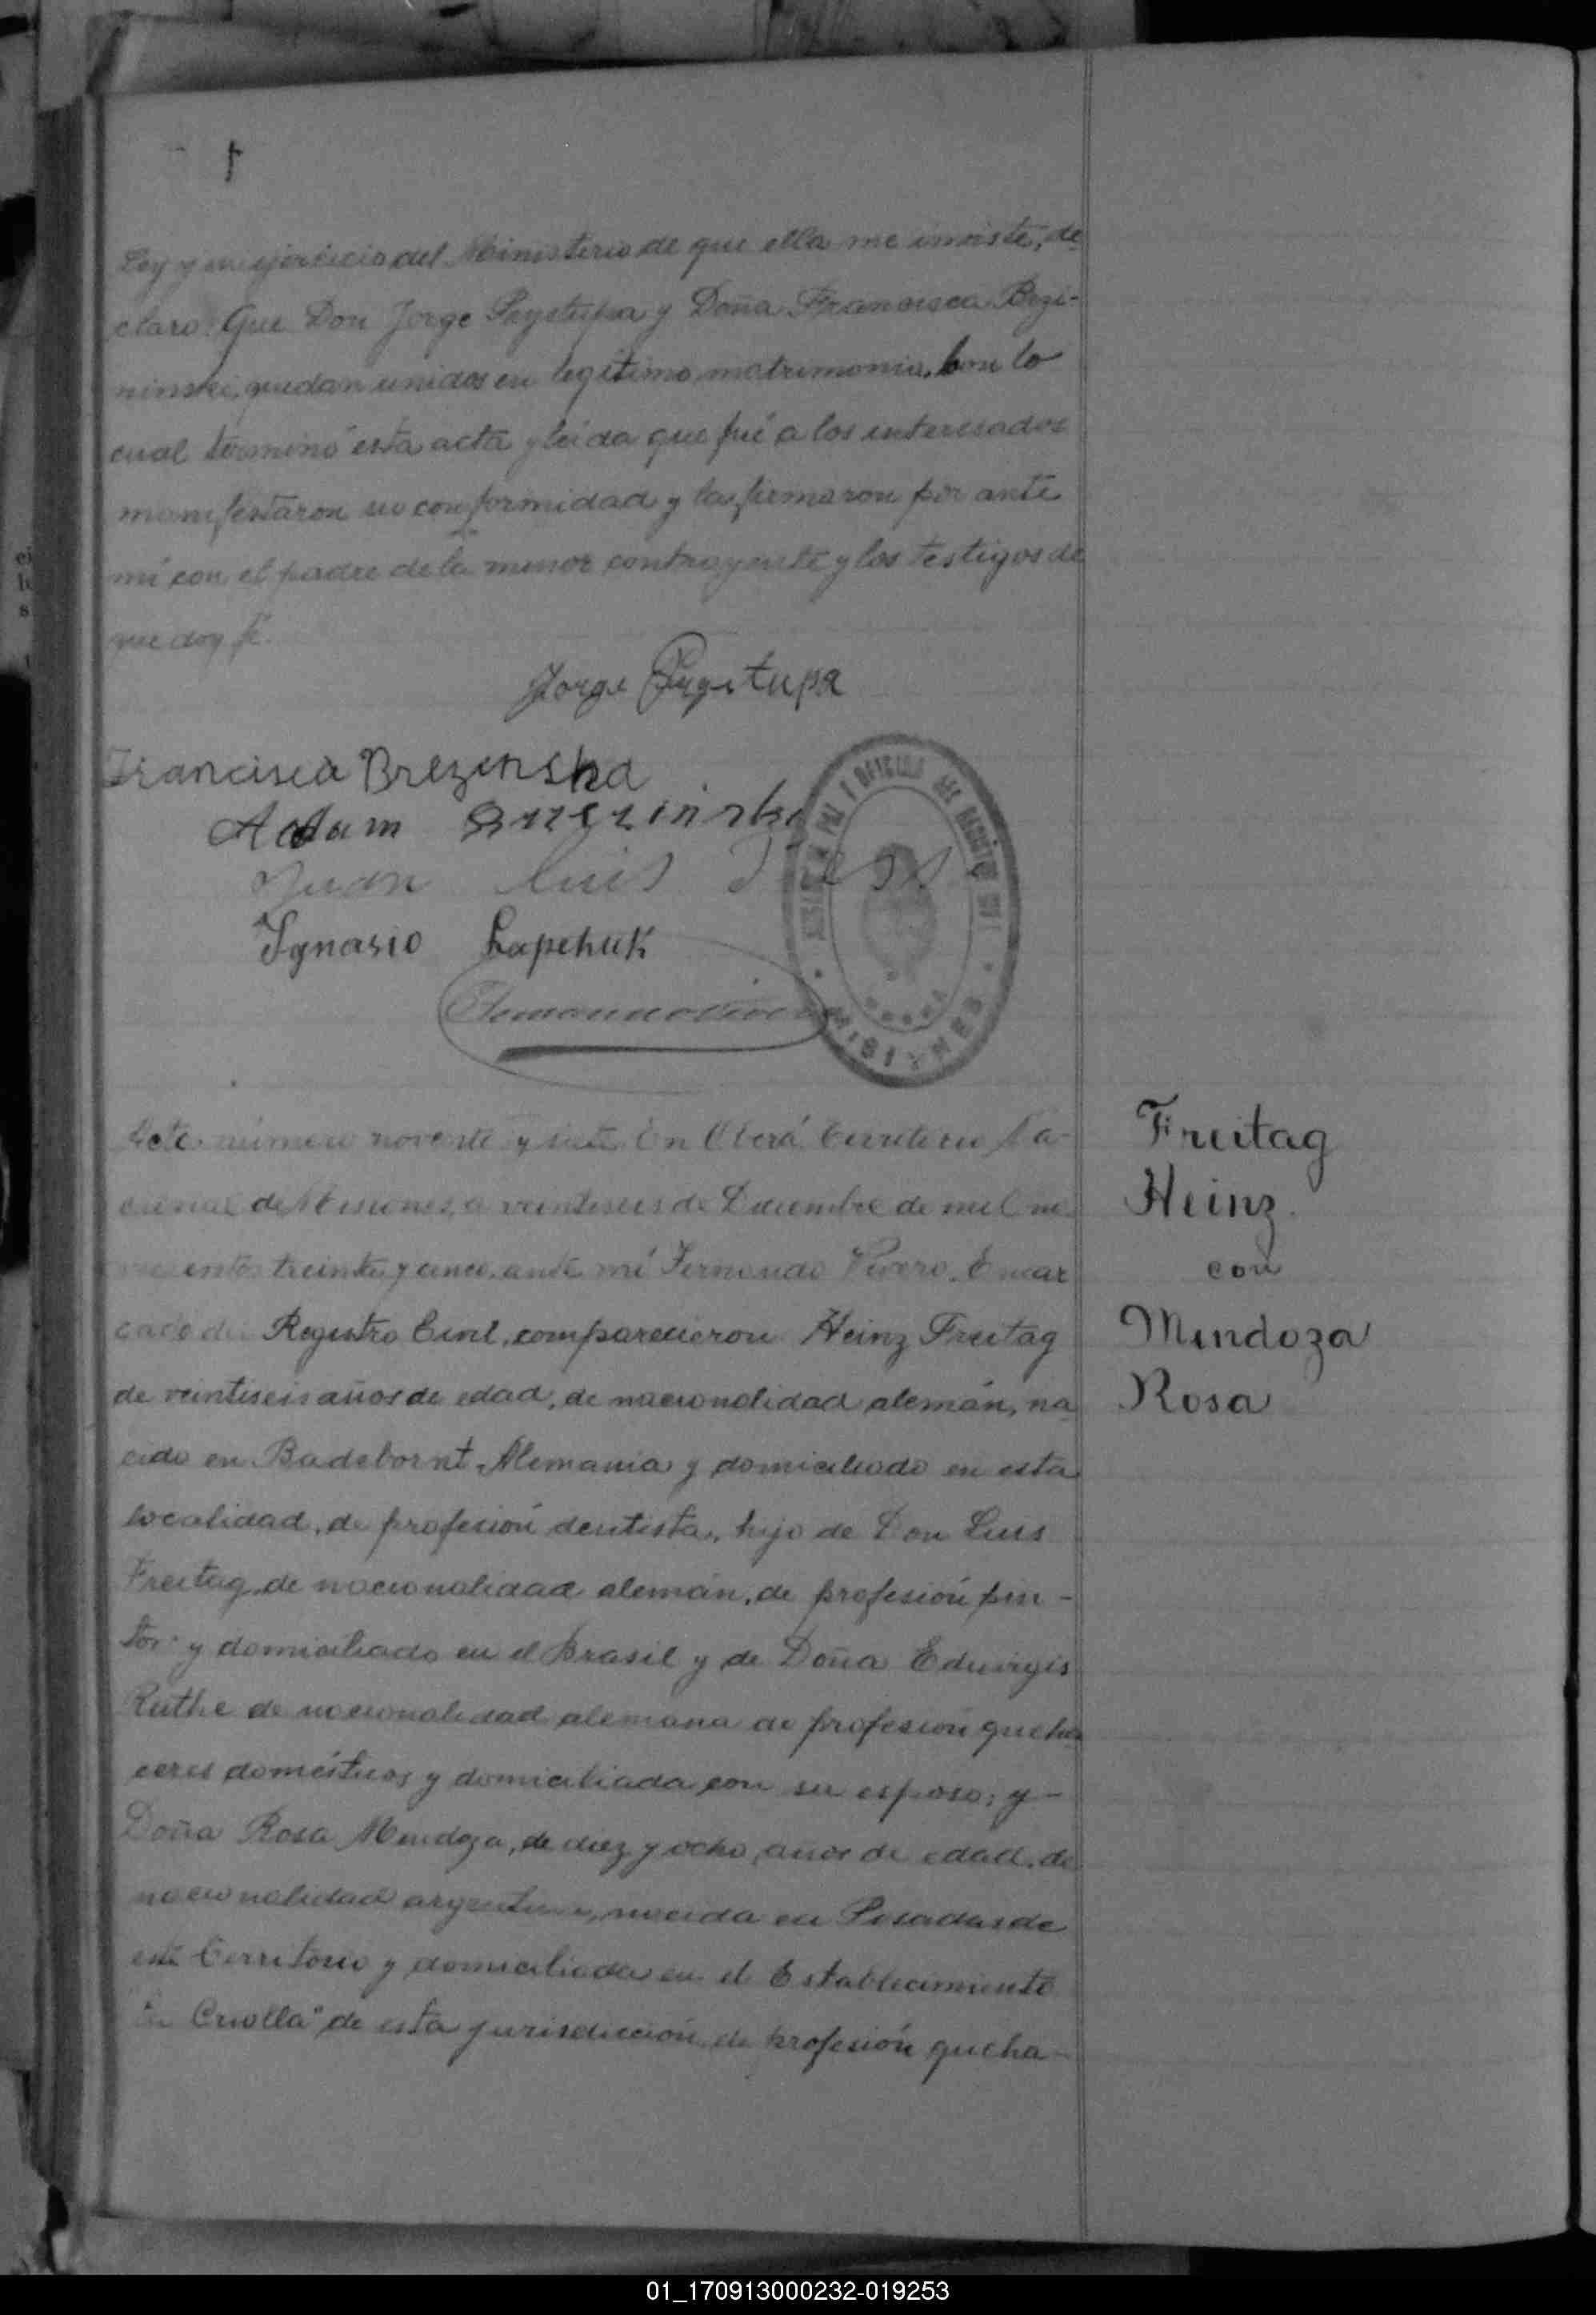 Ley y en ejercicio del Ministerio de que ella me inviste, de-
claro: Que Don Jorge Prystupa y Doña Francisca Brzi-
ninski, quedan unidos en legítimo matrimonio. Con lo
cual terminó esta acta y leída que fué a los interesados
manifestaron su conformidad y la firmaron por ante
mí con el padre de la menor contrayente y los testigos de
que doy fé.
Jorge Prystupa
Francisca Brezinska
Adam Brzezinski
Juan Luis
Ignasio Lapchuk
MISIONES
Acta número noventa y siete. En Oberá, Territorio Na-
cional de Misiones, a veintiseis de Diciembre de mil no-
vecientos treinta y cinco, ante mí Fernando Vivero, Encar
gado del Registro Civil, comparecieron Heinz Freitag
de veintiseis años de edad, de nacionalidad alemán, na
cido en Badebornt, Alemania y domiciliado en esta
localidad, de profesión dentista, hijo de Don Luis
Freitag, de nacionalidad alemán, de profesión pin-
tor y domiciliado en el Brasil y de Doña Eduvigis
Ruthe de nacionalidad alemana de profesión queha
ceres domésticos y domiciliada con su esposo; y-
Doña Rosa Mendoza, de diez y ocho años de edad, de
nacionalidad argentina, nacida en Posadas de
este Territorio y domiciliada en el Establecimiento
"La Criolla" de esta jurisdicción, de profesión queha-
Freitag
Heinz
con
Mendoza
Rosa
01_170913000232-019253